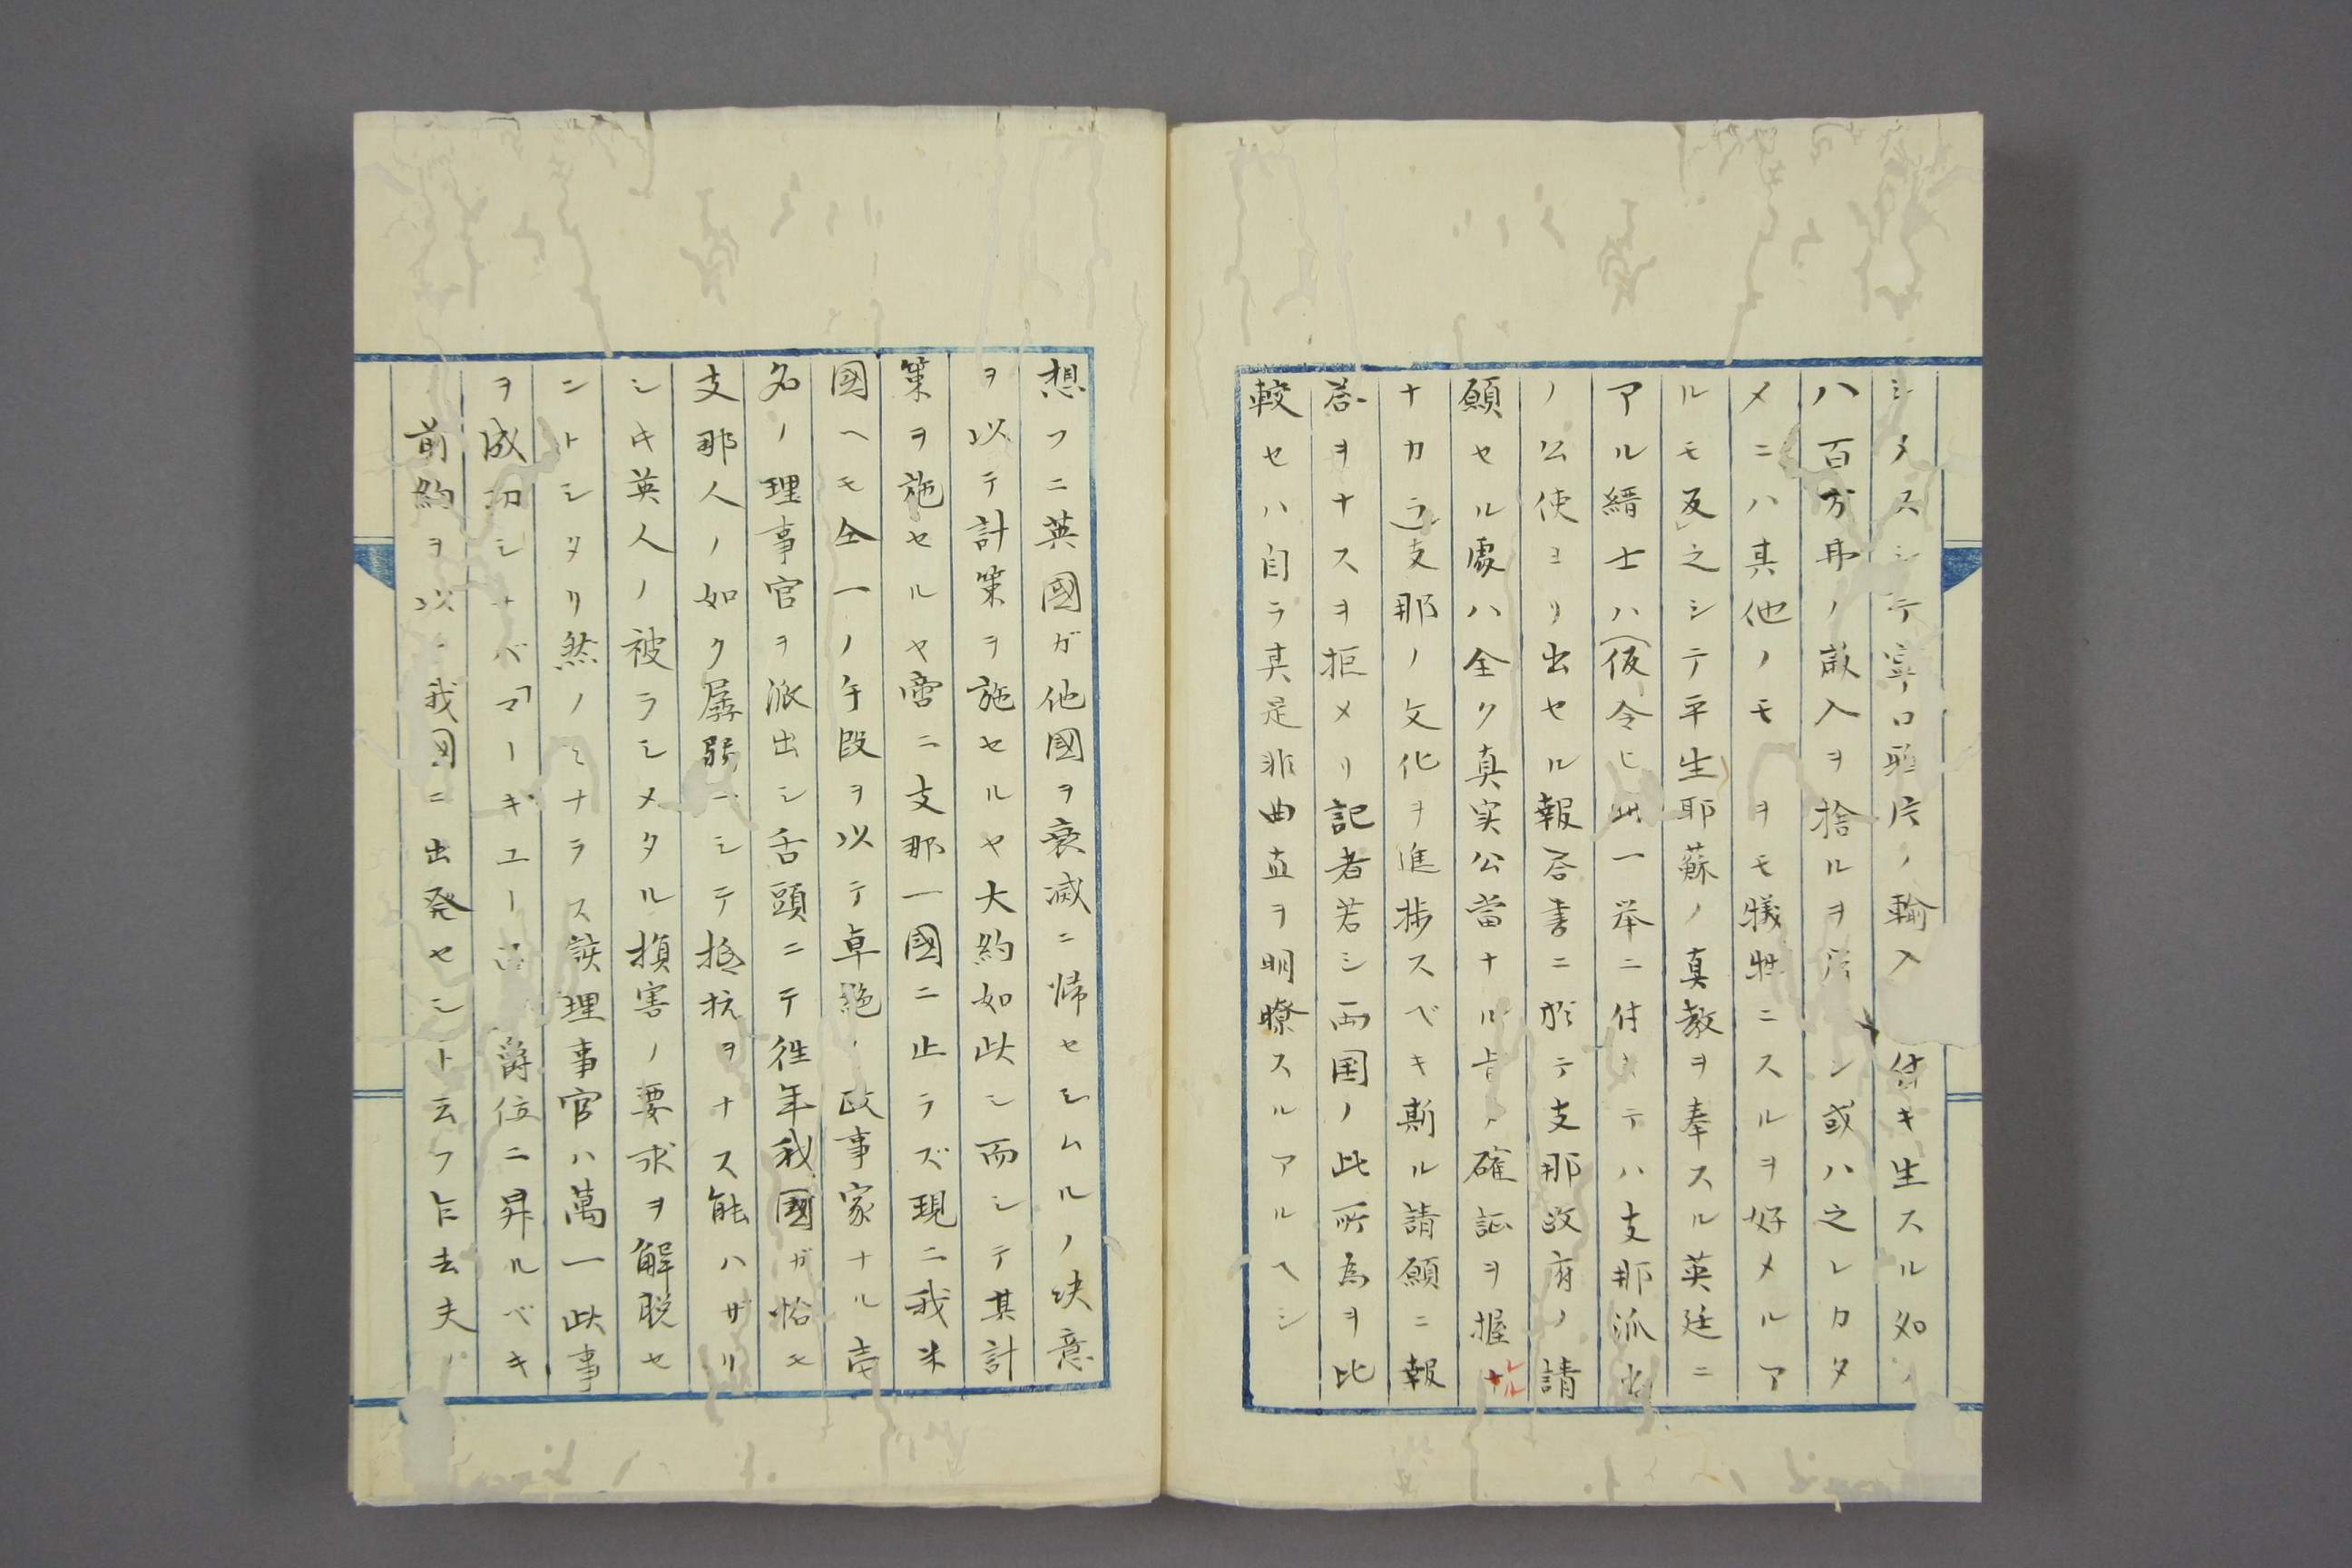 シメスシテ寧ロ鴉片ノ輸入 付キ生スル如
八百万弗ノ歳入ヲ捨ルヲ シ或ハ之レカタ
メニハ其他ノモ ヲモ犠牲ニスルヲ好メルア
ルモ反之シテ平生耶蘇ノ真教ヲ奉スル英廷ニ
アル縉士ハ(仮令ヒ此一举ニ付キテハ支那派出
ノ公使ヨリ出セル報答書ニ於テ支那政府ノ請
願セル處ハ全ク真実公當ナル旨ノ確証ヲ握
ナカラ)支那ノ文化ヲ進捗スベキ斯ル請願ニ報
答ヲナスヲ拒メリ記者若シ両国ノ此所為ヲ比
較セハ自ラ其是非曲直ヲ明瞭スルアルヘシ
想フニ英國ガ他國ヲ衰滅ニ帰セシムルノ決意
ヲ以テ計策ヲ施セルヤ大約如此シ而シテ其計
策ヲ施セルヤ啻ニ支那一國ニ止ラズ現ニ我米
國ヘモ仝一ノ手段ヲ以テ卓絶ノ政事家ナル壱
名ノ理事官ヲ派出シ舌頭ニテ往年我國ガ恰モ
支那人ノ如ク孱弱ニシテ抵抗ヲナス能ハザリ
シキ英人ノ被ラシメタル損害ノ要求ヲ解脱セ
ントシタリ然ノミナラス該理事官ハ萬一此事
ヲ成功シナバ「マーキユー 爵位ニ昇ルベキ
前約ヲ以 我国ニ出発セシト云フ乍去夫